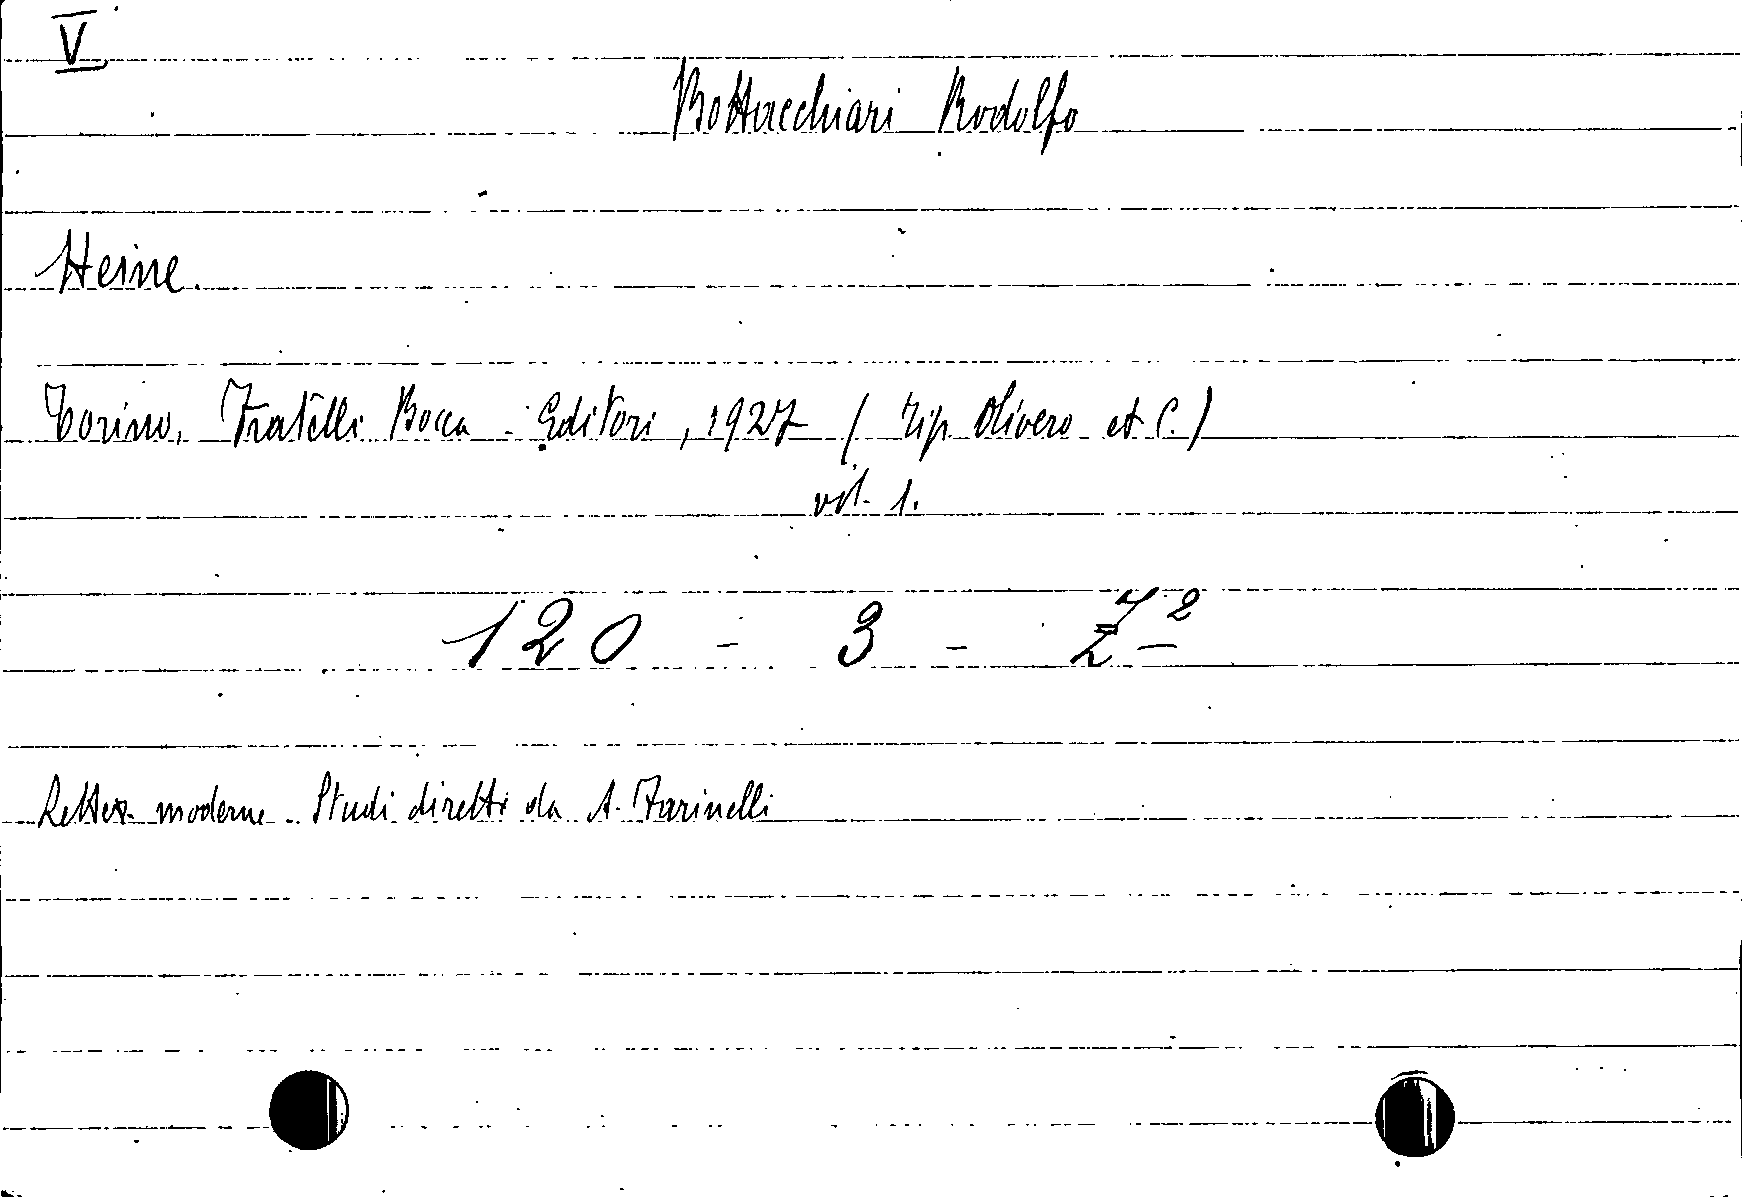 V
Bottacchiari Rodolfo
Heine.
Torino, Fratelli Bocca - Editori, 1927 (Tip. Olivero et C.)
vol. 1.
120 - 3 -
Letter. moderne - Studi diretti da A. Farinelli